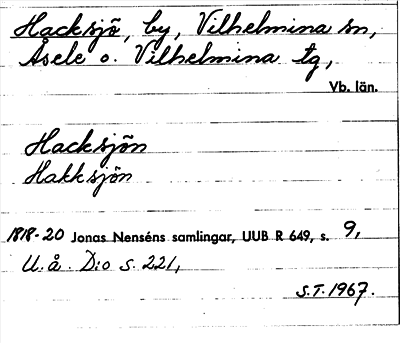 Hacksjö, by, Vilhelmina sn,
Åsele o. Vilhelmina tg,
Vb. län.
Hacksjön
Hakksjön
1818-20 Jonas Nenséns samlingar, UUB R 649, s. 9,
U.å. D:o s. 221,
S.T. 1967.